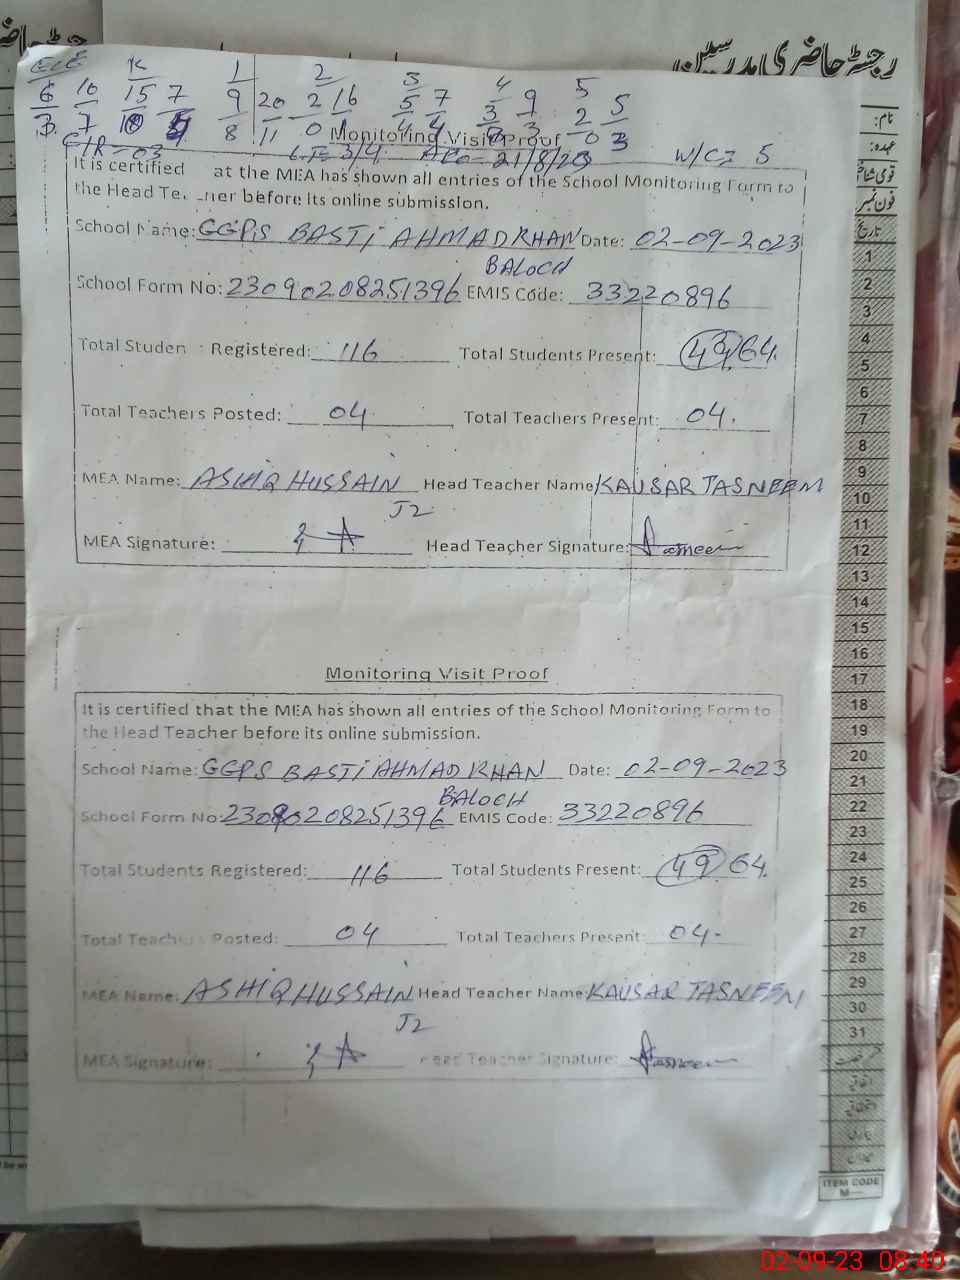 رجسٹر حاضری مدرسین
ECE K 1 2 3 4 5
6 10 15 7 9 20 2 16 5 7 3 9 2 5
3 7 10 8 11 0 4 4 3 0 3
L.E= 3/4 21/8/23 W/C= 5
Monitoring Visit Proof
It is certified at the MEA has shown all entries of the School Monitoring Form to
the Head Te ner before its online submission.
School Name: GGPS BASTI AHMAD KHAN Date: 02-09-2023
BALOCH
School Form No: 23090208251396 EMIS Code: 33220896
Total Studen Registered: 116 Total Students Present: 64.
Total Teachers Posted: 04 Total Teachers Present: 04.
MEA Name: ASHIQ HUSSAIN Head Teacher Name KAUSAR TASNEEM
J2
MEA Signature: Head Teacher Signature:
Monitoring Visit Proof
It is certified that the MEA has shown all entries of the School Monitoring Form to
the Head Teacher before its online submission.
School Name: GGPS BASTI AHMAD KHAN Date: 02-09-2023
BALOCH
School Form No: 23090208251396 EMIS Code: 33220896
Total Students Registered: 116 Total Students Present: 49 64.
Total Teachers Posted: 04 Total Teachers Present: 04.
MEA Name: ASHIQ HUSSAIN Head Teacher Name: KAUSAR TASNEEM
J2
MEA Signature: Head Teacher Signature:
نام:
عہدہ:
قومی شناختی
فون نمبر
تاریخ
1
2
3
4
5
6
7
8
9
10
11
12
13
14
15
16
17
18
19
20
21
22
23
24
25
26
27
28
29
30
31
ITEM CODE
M—
02-09-23 08:40